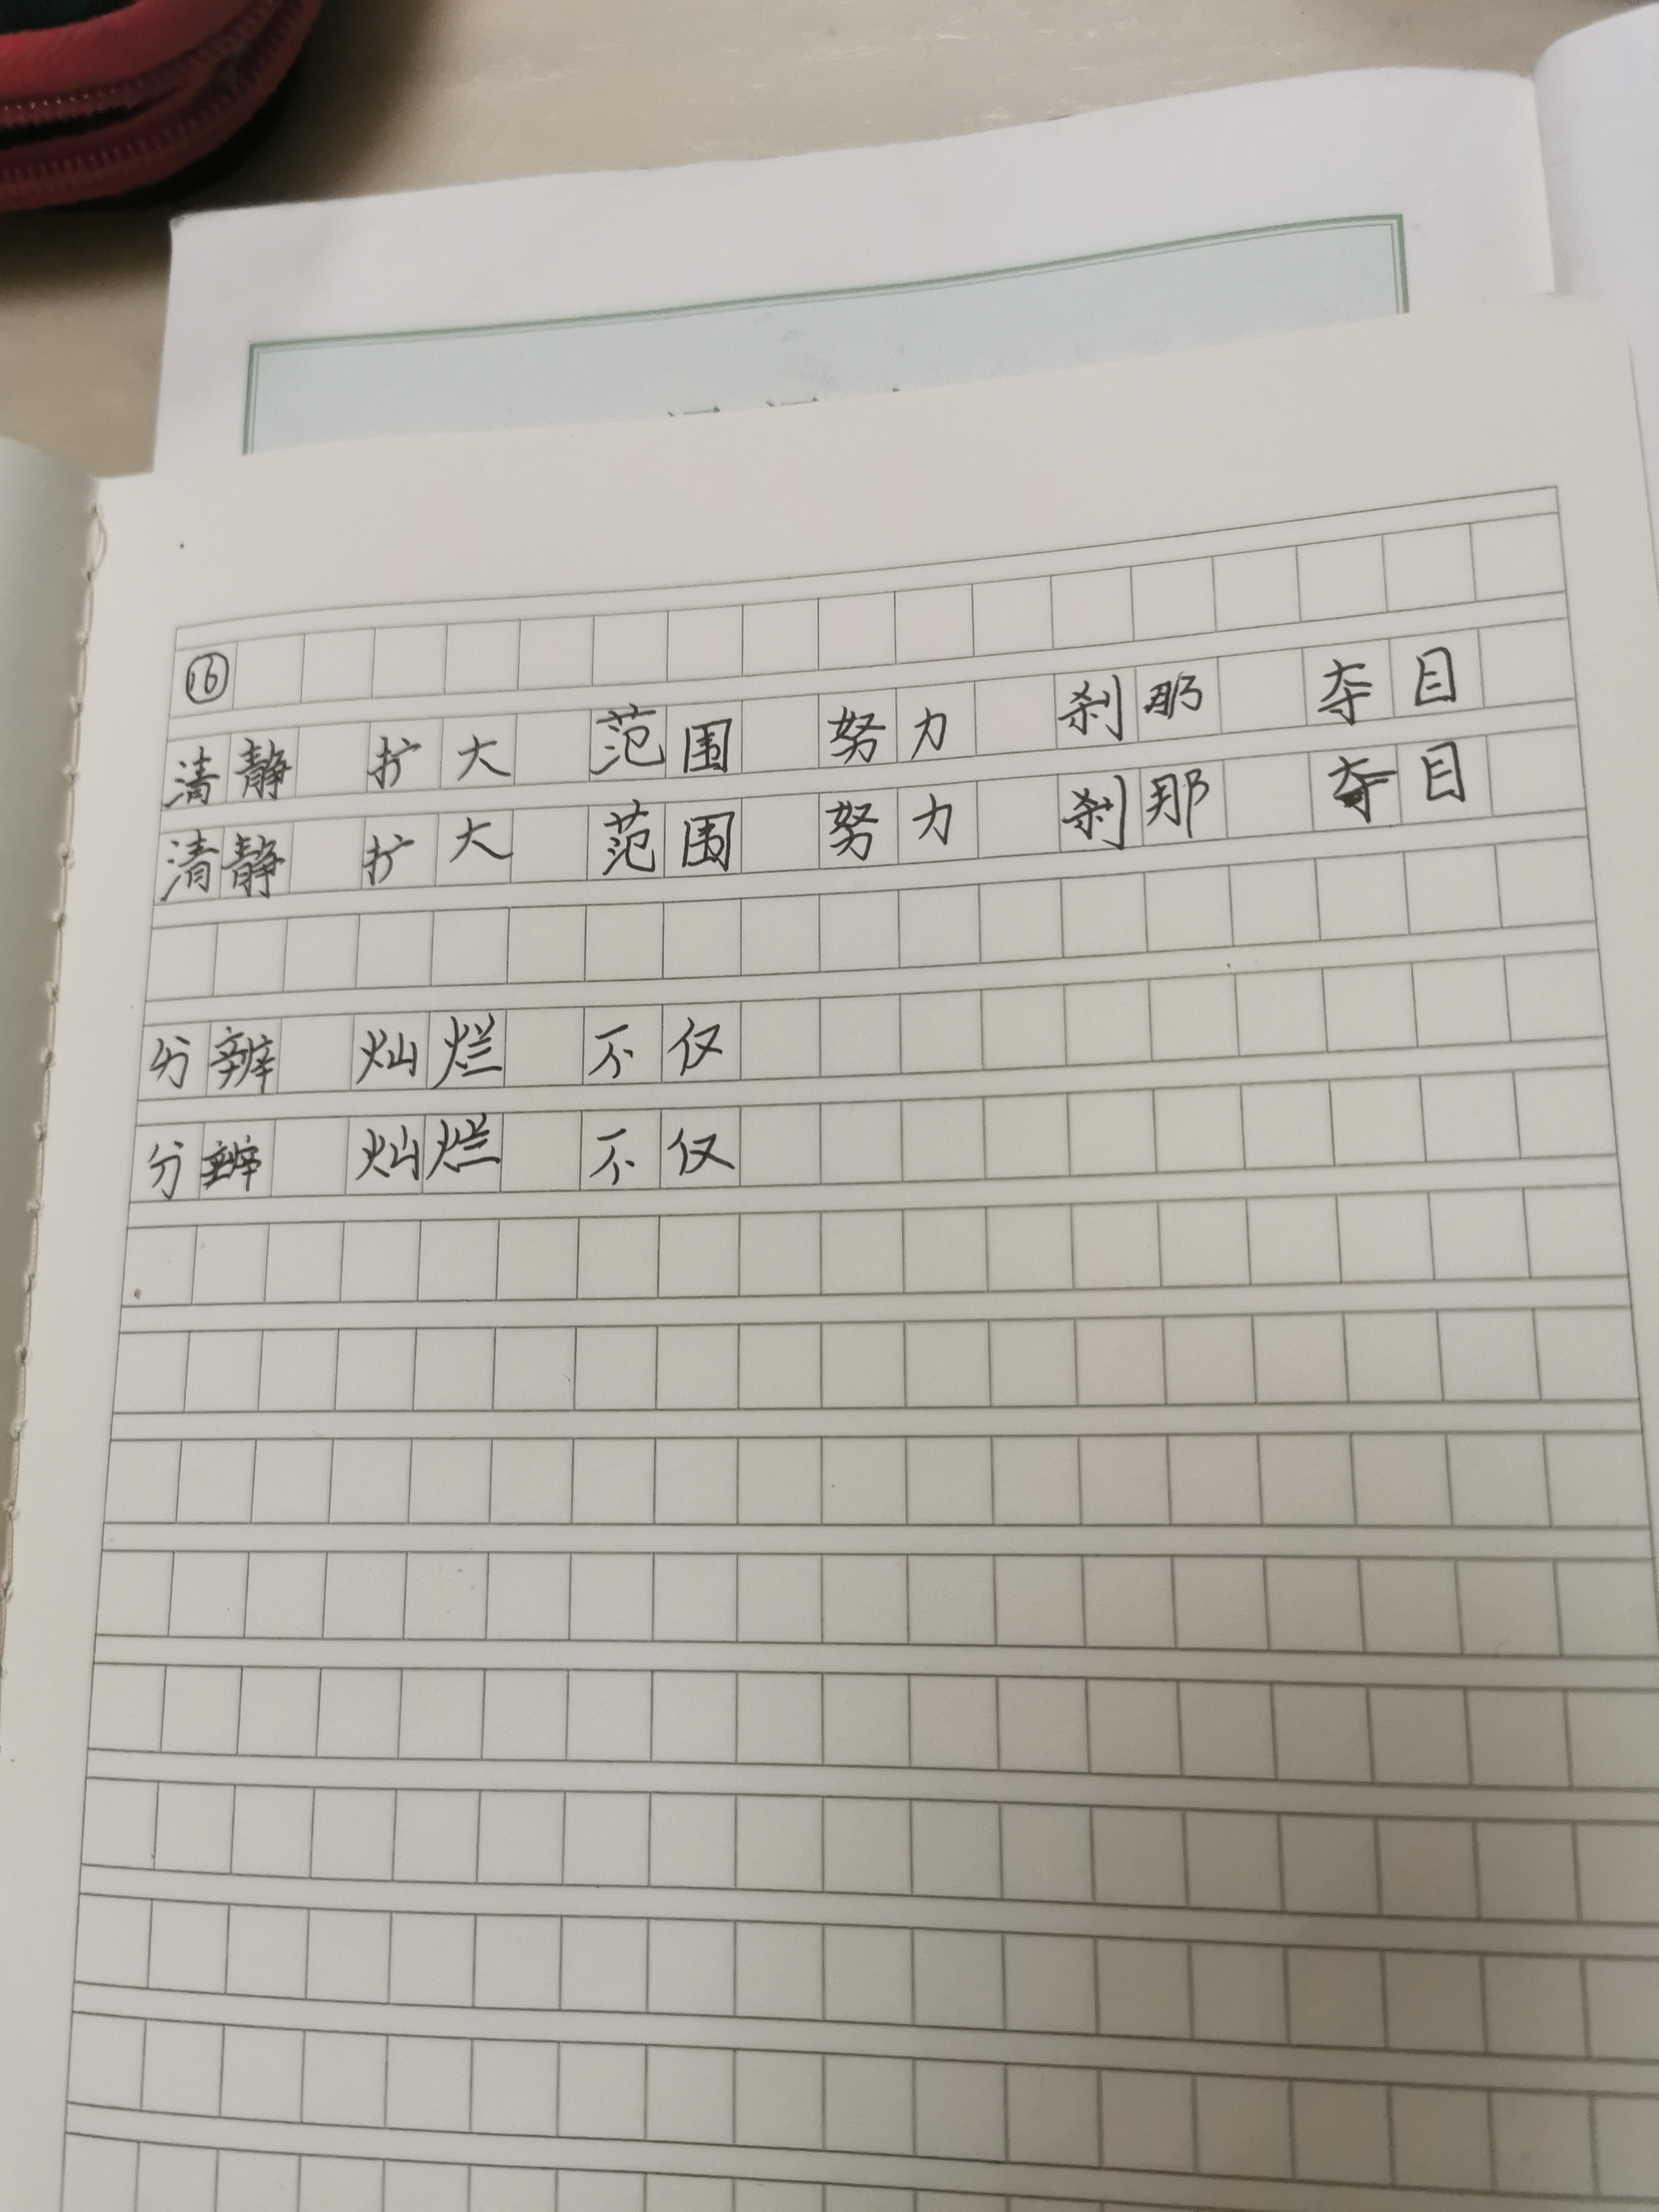 ⑯
清静 扩大 范围 努力 刹那 夺目
清静 扩大 范围 努力 刹那 夺目
分辨 灿烂 不仅
分辨 灿烂 不仅